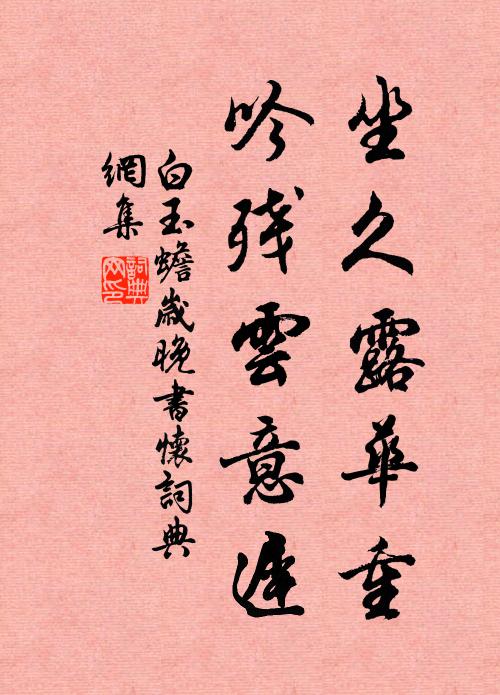 坐久露華重
吟残雲意遅
白玉蟾歲晚書懷詞典
網集
詞典
网印